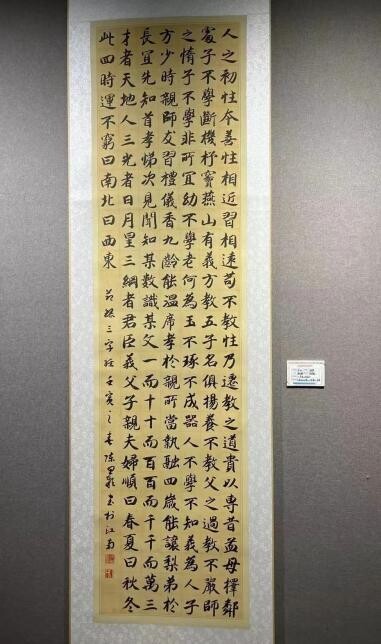 人之初性本善性相近習相遠苟不教性乃遷教之道貴以專昔孟母擇鄰
處子不學斷機杼竇燕山有義方教五子名俱揚養不教父之過教不嚴師
之惰子不學非所宜幼不學老何為玉不琢不成器人不學不知義為人子
方少時親師友習禮儀香九齡能溫席孝於親所當執融四歲能讓梨弟於
長宜先知首孝悌次見聞知某數識某文一而十十而百百而千千而萬三
才者天地人三光者日月星三綱者君臣義父子親夫婦順曰春夏曰秋冬
此四時運不窮曰南北曰西東 節錄三字經壬寅之春陳書於江南